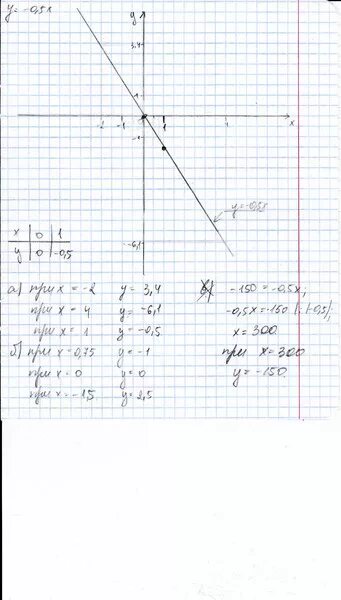 y = -0,5x
y
3,4
1
-2 -1 1 4 x
-1
y=-0,5x
-6,1
x 0 1
y 0 -0,5
а) при x = -2 y = 3,4
при x = 4 y = -6,1
при x = 1 y = -0,5
б) при x=0,75 y = -1
при x = 0 y = 0
при x = -1,5 y = 2,5
-150 = -0,5x;
-0,5x=-150 |:(-0,5);
x = 300.
при x = 300
y = -150.